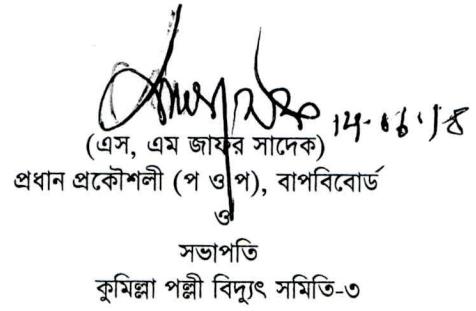 (এস, এম জাফর সাদেক)
প্রধান প্রকৌশলী (প ও প), বাপবিবোর্ড
ও
সভাপতি
কুমিল্লা পল্লী বিদ্যুৎ সমিতি-৩